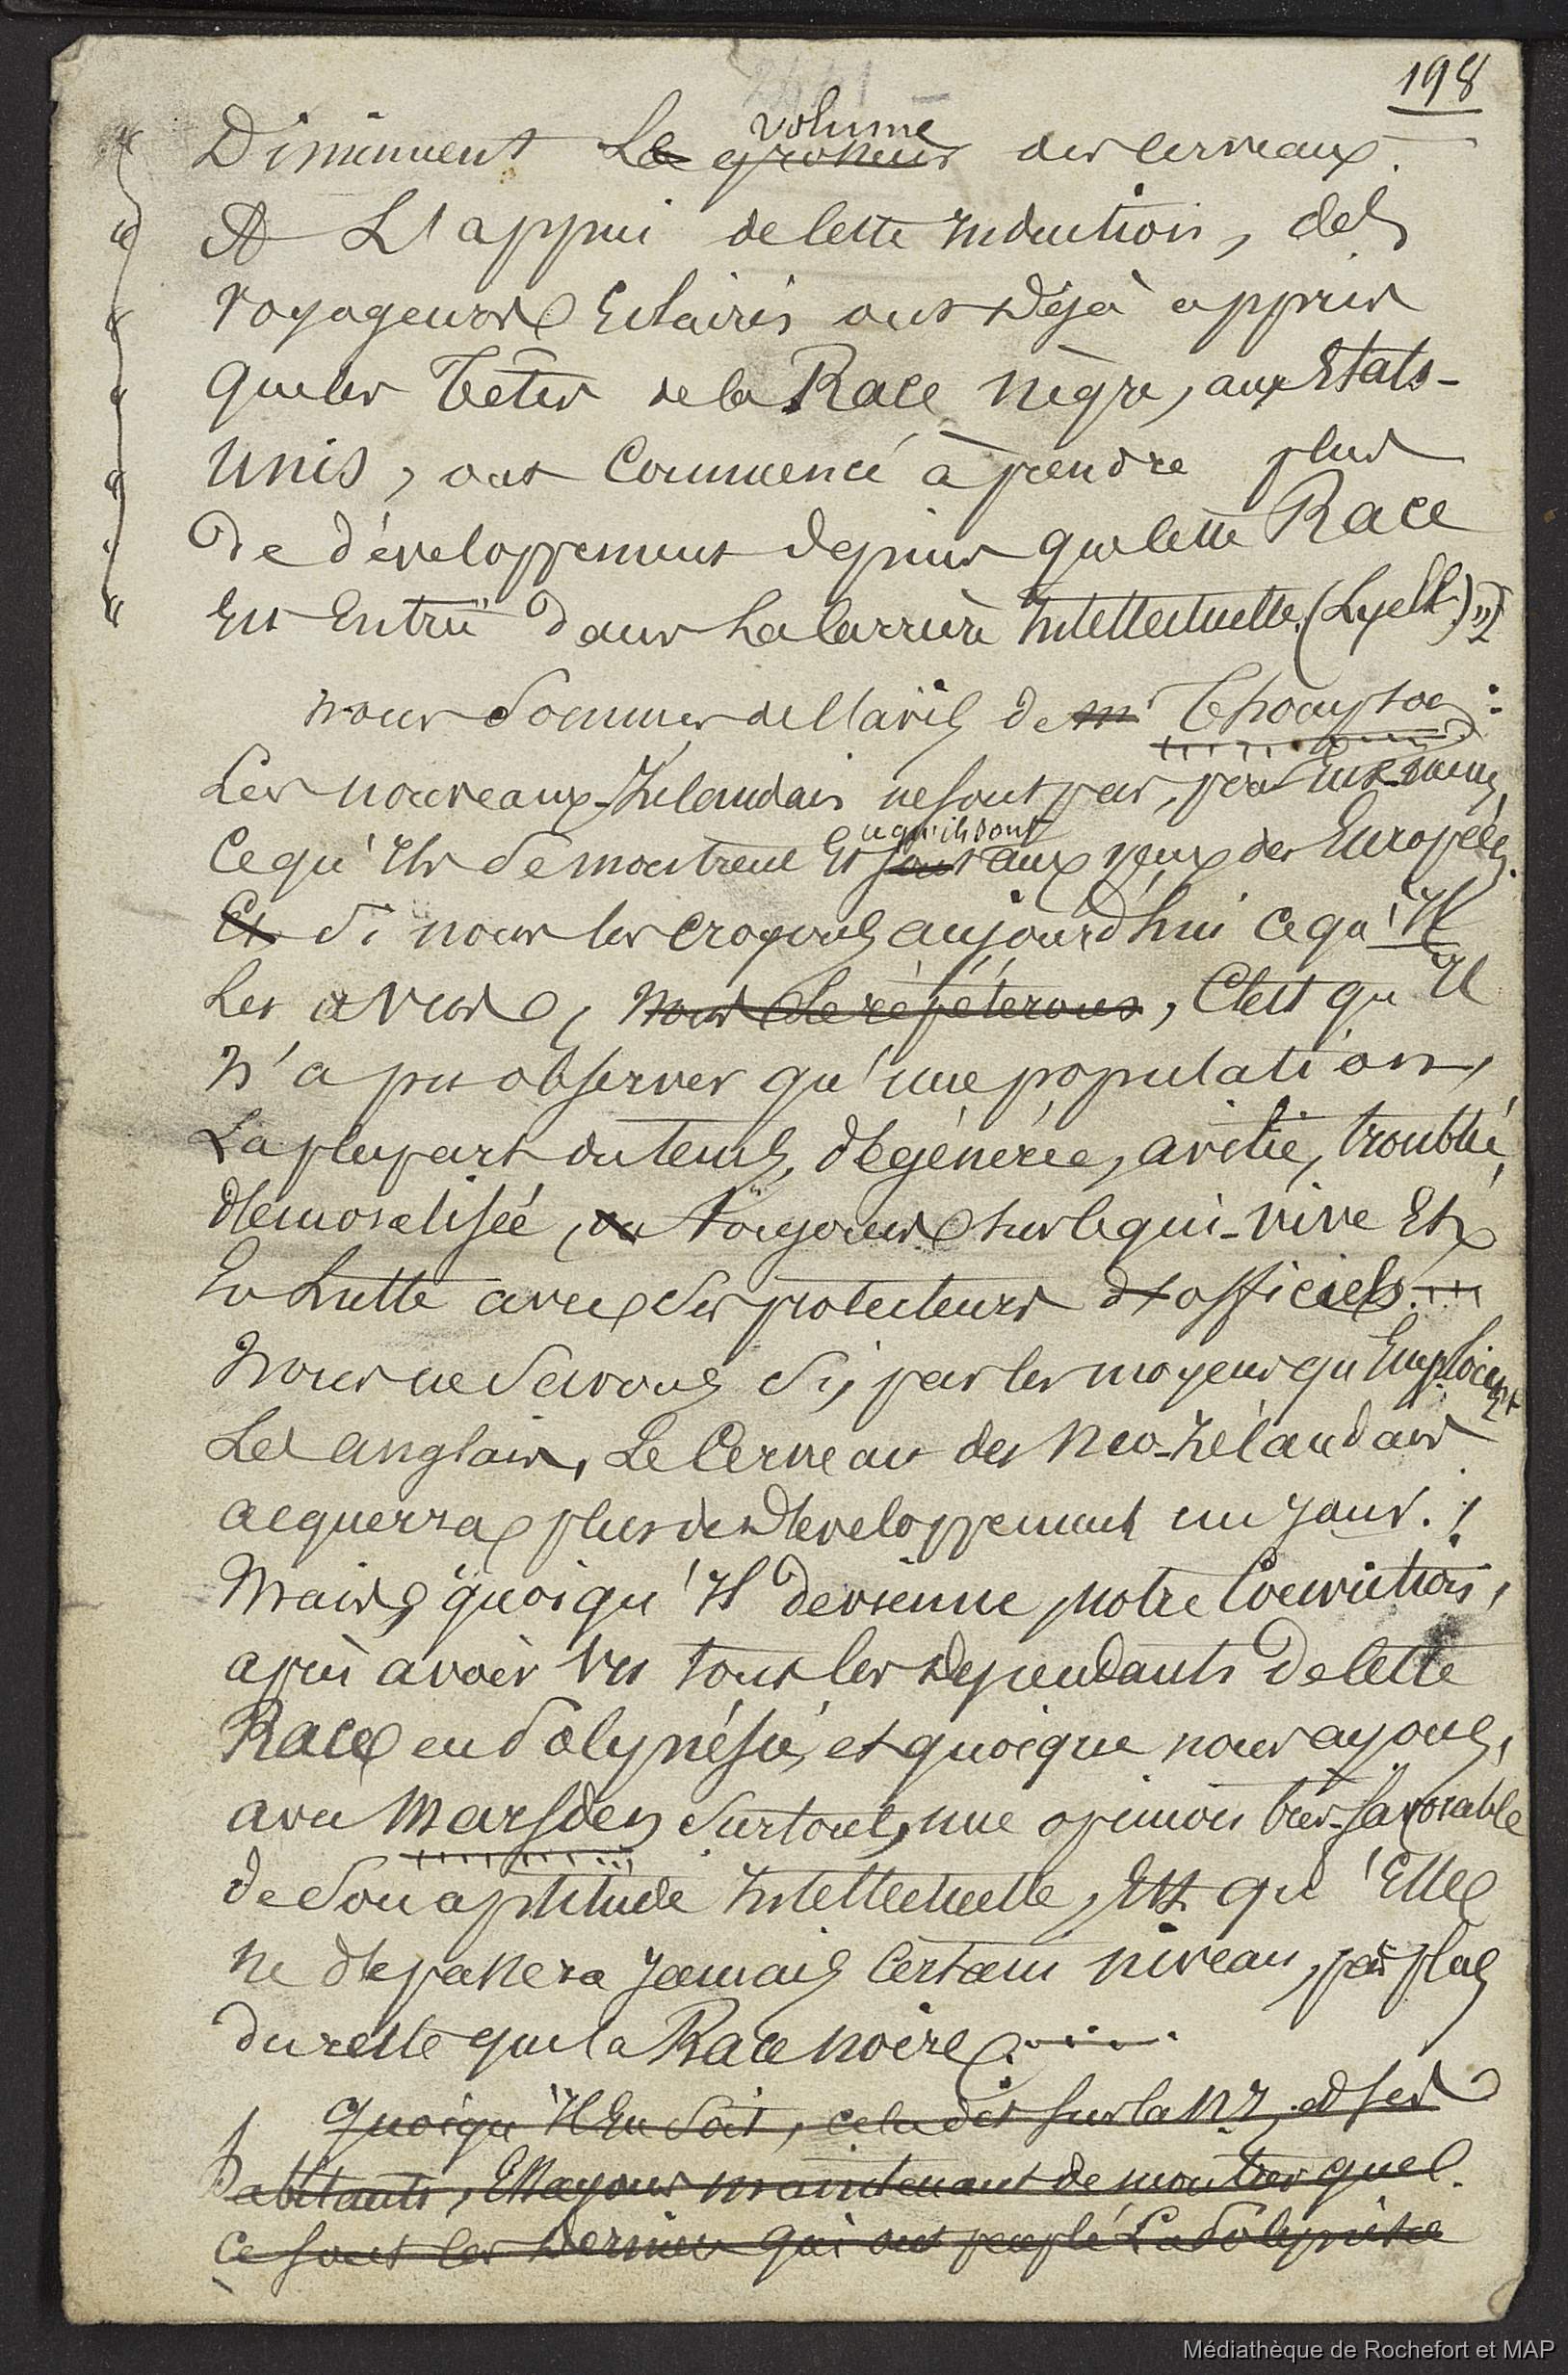 198
Diminuent Le grosseur volume des cerveaux.
A L'appui de cette Induction, des
voyageurs Eclairés ont Déjà appris
que les Têtes de la Race nègre, aux Etats-
unis, ont Commencé à prendre plus
De développement depuis que cette Race
Est Entrée Dans La Carrière Intellectuelle (Lyell.) »
nous Sommes de l'avis de Mr Thompson :
Les nouveaux-Zélandais ne sont pas, par Eux-mêmes,
Ce qu'Ils se montrent Et sont ce qu'ils sont aux yeux des Européens.
Et Si nous les croyons aujourd'hui ce qu'Il
Les a vus, nous le répéterons, C'est qu'Il
N'a pu observer qu'une population,
La plupart du tems, dégénérée, avilie, troublée,
démoralisée, ou toujours sur le qui-vive Et
En Lutte avec ses protecteurs d'officiels.
Nous ne Savons Si, par les moyens qu'Emploient
Les anglais, Le Cerveau des Néo-Zélandais
acquerra plus de Développement un jour. !
Mais, quoiqu'Il devienne, notre Conviction,
après avoir Vu tous les dépendants De cette
Race en Polynésie, et quoique nous ayons,
avec Marsden Surtout, une opinion très-favorable
de Son aptitude Intellectuelle, Est qu'Elle
ne dépassera Jamais Certain niveau, pas plus
du reste que la Race noire.
Quoiqu'Il En Soit, cela dit sur la N. Z. et ses
habitants, Essayons maintenant de montrer quel
ce sont les derniers qui ont peuplé La Polynésie
Médiathèque de Rochefort et MAP